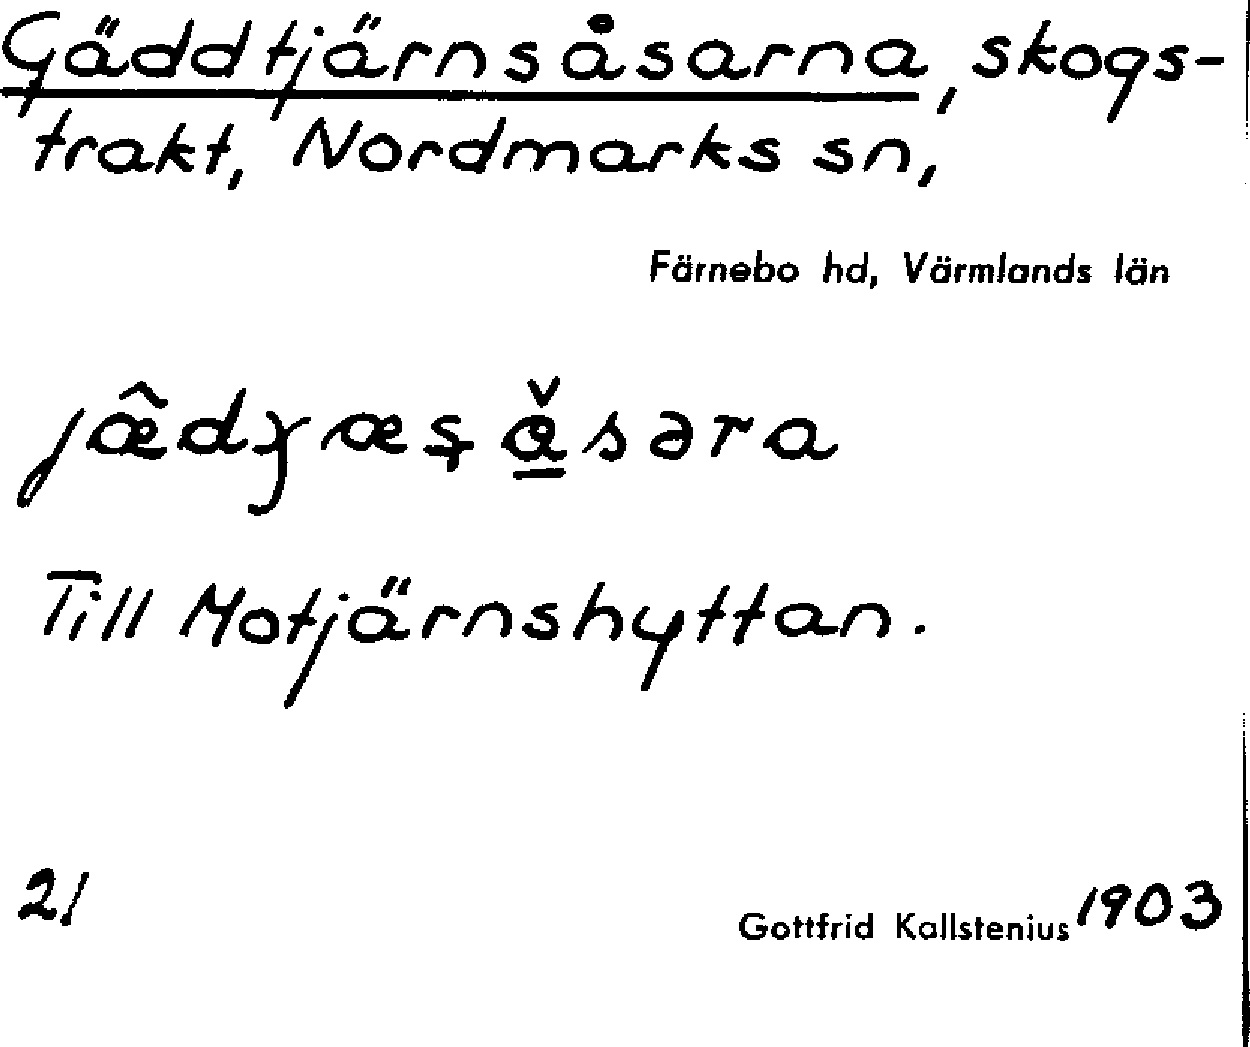 Gäddtjärnsåsarna, skogs-
trakt, Nordmarks sn,
Färnebo hd, Värmlands län
Till Motjärnshyttan.
21
Gottfrid Kallstenius 1903